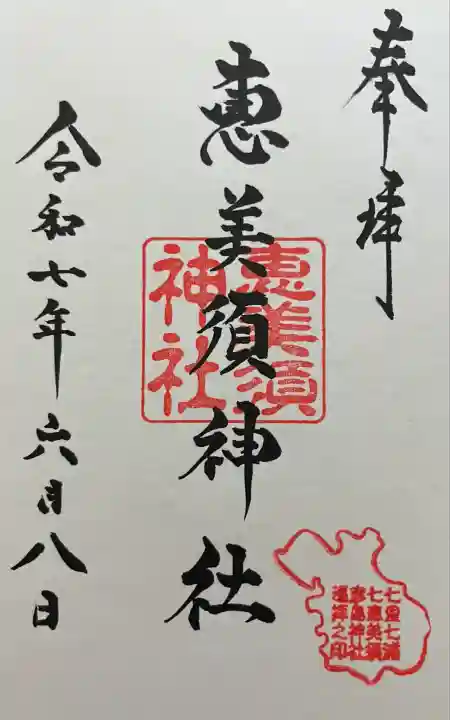 奉拝
恵美須神社
恵美須
神社
令和七年六月八日
七里七浦
七恵美須
神社
遥拝之印